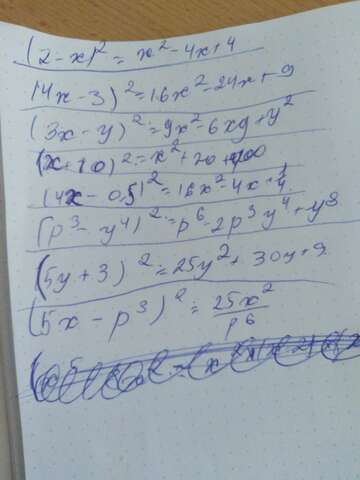 (2-x)²=x²-4x+4
(4x-3)²=16x²-24x+9
(3x-y)²=9x²-6xy+y²
(x+10)²=x²+20+100
(4x-0,5)²=16x²-4x+1/4
(p³-y⁴)²=p⁶-2p³y⁴+y⁸
(5y+3)²=25y²+30y+9.
(5x-p³)²=25x²/p⁶